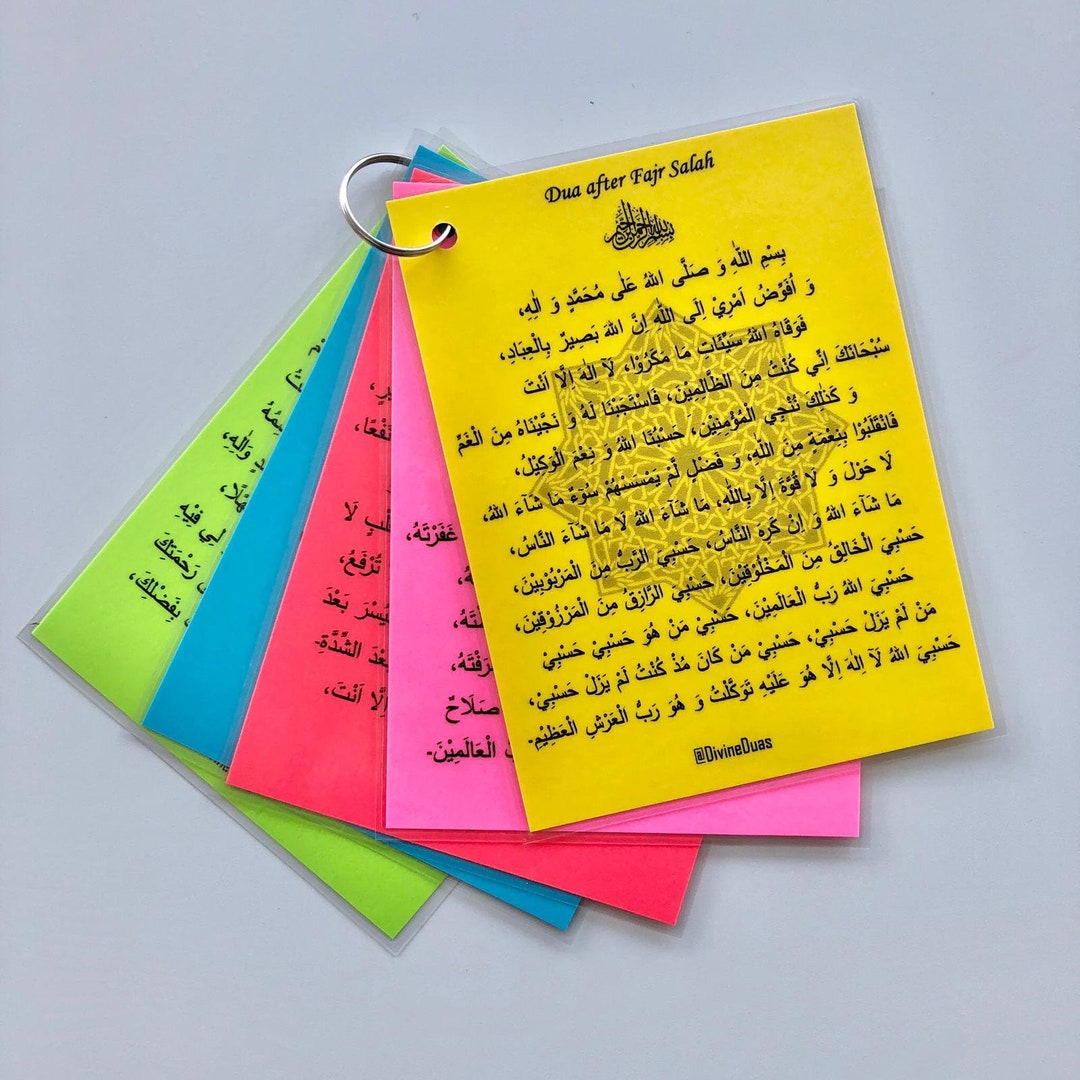 Dua after Fajr Salah
بِسْمِ اللّٰهِ الرَّحْمٰنِ الرَّحِيْمِ
بِسْمِ اللّٰهِ وَ صَلَّى اللّٰهُ عَلٰى مُحَمَّدٍ وَ اٰلِهِ،
وَ اُفَوِّضُ اَمْرِيْ اِلَى اللّٰهِ اِنَّ اللّٰهَ بَصِيْرٌ بِالْعِبَادِ،
فَوَقَاهُ اللّٰهُ سَيِّئَاتِ مَا مَكَرُوْا، لَآ اِلٰهَ اِلَّا اَنْتَ
سُبْحَانَكَ اِنِّي كُنْتُ مِنَ الظَّالِمِيْنَ، فَاسْتَجَبْنَا لَهُ وَ نَجَّيْنَاهُ مِنَ الْغَمِّ
وَ كَذٰلِكَ نُنْجِي الْمُؤْمِنِيْنَ، حَسْبُنَا اللّٰهُ وَ نِعْمَ الْوَكِيْلُ،
فَانْقَلَبُوْا بِنِعْمَةٍ مِنَ اللّٰهِ، وَ فَضْلٍ لَمْ يَمْسَسْهُمْ سُوْءٌ مَا شَآءَ اللّٰهُ،
لَا حَوْلَ وَ لَا قُوَّةَ اِلَّا بِاللّٰهِ، مَا شَآءَ اللّٰهُ لَا مَا شَآءَ النَّاسُ،
مَا شَآءَ اللّٰهُ وَ اِنْ كَرِهَ النَّاسُ، حَسْبِيَ الرَّبُّ مِنَ الْمَرْبُوْبِيْنَ،
حَسْبِيَ الْخَالِقُ مِنَ الْمَخْلُوْقِيْنَ، حَسْبِيَ الرَّازِقُ مِنَ الْمَرْزُوْقِيْنَ،
حَسْبِيَ اللّٰهُ رَبُّ الْعَالَمِيْنَ، حَسْبِيْ مَنْ هُوَ حَسْبِيْ حَسْبِيْ
مَنْ لَمْ يَزَلْ حَسْبِيْ، حَسْبِيْ مَنْ كَانَ مُذْ كُنْتُ لَمْ يَزَلْ حَسْبِيْ،
حَسْبِيَ اللّٰهُ لَآ اِلٰهَ اِلَّا هُوَ عَلَيْهِ تَوَكَّلْتُ وَ هُوَ رَبُّ الْعَرْشِ الْعَظِيْمِ-
@DivineDuas
غَفَرْتَهُ،
صَلَاحٌ
الْعَالَمِيْنَ-
لَا
تُرْفَعُ،
بَعْدَ
الشِّدَّةِ-
اِلَّا اَنْتَ،
وَاٰلِهِ،
فِيْهِ
رَحْمَتِكَ
بِفَضْلِكَ،